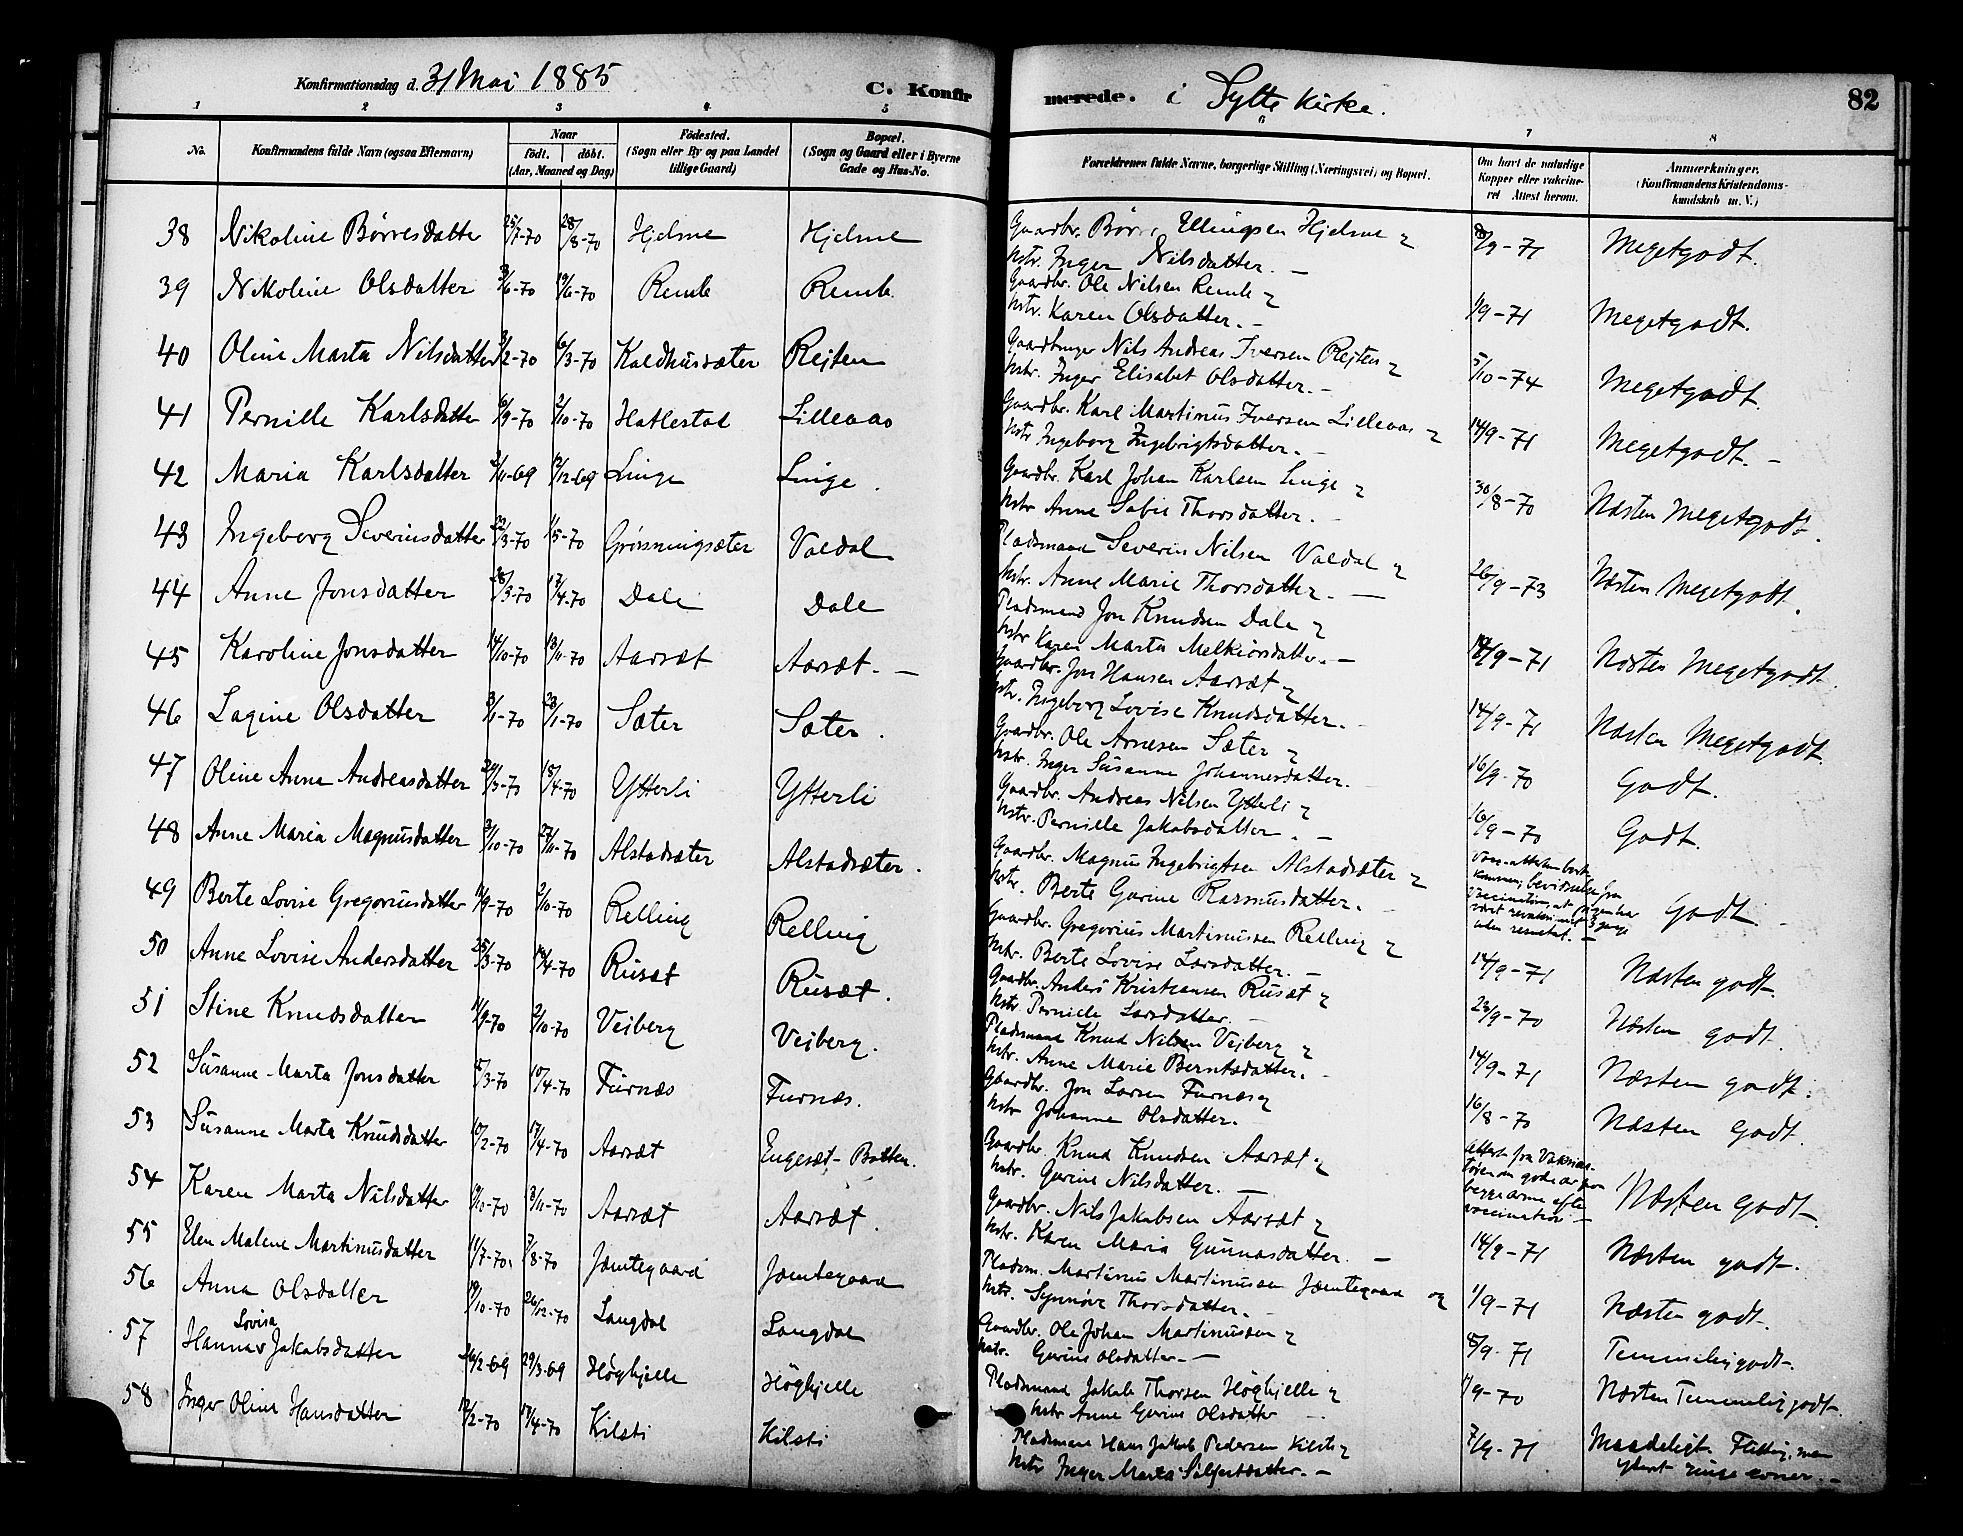 Konfirmationsdag d. 31 Mai 1885
C. Konfirmerede. i Sylte Kirke.
82
1 2 3 4 5 6 7 8
No. Konfirmandens fulde Navn (ogsaa Efternavn)
Naar födt. döbt. (Aar, Maaned og Dag)
Födested. (Sogn eller By og paa Landet tillige Gaard)
Bopæl. (Sogn og Gaard eller i Byerne Gade og Hus-No.
Forældrenes fulde Navne, borgerlige Stilling (Næringsvei) og Bopæl.
Om havt de naturlige Kopper eller vakcineret Attest herom.
Anmærkninger. (Konfirmandens Kristendomskundskab m. V.)
38 Nikoline Børresdatter 25/7-70 28/8-70 Hjelme Hjelme Gaardbr. Børre Ellingsen Hjelme &
Hstr. Inger Nilsdatter. — 8/9-71 Megetgodt.
39 Nikoline Olsdatter 3/6-70 19/6-70 Remb Remb. Gaardbr. Ole Nilsen Remb &
Hstr. Karen Olsdatter. — 1/9-71 Megetgodt.
40 Oline Marta Nilsdatter 3/2-70 6/3-70 Kaldhussæter Rejten Gaardbruger Nils Andreas Iversen Rejten &
Hstr. Inger Elisabet Olsdatter. — 5/10-74 Megetgodt.
41 Pernille Karlsdatter 6/9-70 2/10-70 Hatlestad Lilleaas Gaardbr. Karl Martinus Iversen Lilleaas &
Hstr Ingeborg Ingebrigtsdatter. — 14/9-71 Megetgodt. —
42 Maria Karlsdatter 2/11-69 12/12-69 Linge Linge. Gaardbr. Karl Johan Karlsen Linge &
Hstr Anne Sabie Thorsdatter. — 30/8-70 Næsten Megetgodt.
43 Ingeborg Severinsdatter 22/3-70 1/5-70 Grønningsæter Valdal Pladsmand Severin Nilsen Valdal &
Hstr. Anne Marie Thorsdatter. — 26/9-73 Næsten Megetgodt.
44 Anne Jonsdatter 28/3-70 17/4-70 Dale Dale Pladsmand Jon Knudsen Dale &
Hstr Karen Marta Melkiorsdatter. — 14/9-71 Næsten Megetgodt.
45 Karoline Jonsdatter 14/10-70 13/11-70 Aarsæt Aarsæt. — Gaardbr. Jon Hansen Aarsæt &
Hstr. Ingeborg Lovise Knudsdatter. — 14/9-71 Næsten Megetgodt
46 Lagine Olsdatter 3/1-70 23/1-70 Sæter Sæter. Gaardbr. Ole Arnesen Sæter &
Hstr. Inger Susanne Johannesdatter. 16/9-70 Godt.
47 Oline Anne Andreasdatter 24/3-70 18/4-70 Ytterli Ytterli Gaardbr. Andreas Nilsen Ytterli &
Hstr. Pernille Jakobsdatter. — 16/9-70 Godt.
48 Anne Maria Magnusdatter 3/10-70 27/11-70 Alstadsæter Alstadsæter. Gaardbr. Magnus Ingebrigtsen Alstadsæter &
Hstr. Berte Gurine Rasmusdatter. — uden resultat. — Godt —
49 Berte Lovise Gregoriusdatter 11/9-70 2/10-70 Relling Relling Gaardbr. Gregorius Martinussen Relling &
Hstr. Berte Lovise Larsdatter. — 14/9-71 Næsten godt.
50 Anne Lovise Andersdatter 25/3-70 18/4-70 Rusæt Rusæt. Gaardbr. Anders Kristiansen Rusæt &
Hstr Pernille Larsdatter. — 23/9-70 Næsten godt.
51 Stine Knudsdatter 11/9-70 2/10-70 Veiberg Veiberg. Pladsmand Knud Nilsen Veiberg &
Hstr. Anne Marie Berntsdatter. — 14/9-71 Næsten godt.
52 Susanne Marta Jonsdatter 15/3-70 10/4-70 Furnæs Furnæs. Gaardbr. Jon Larsen Furnæs &
Hstr Johanne Olsdatter. — 16/8-70 Næsten Godt.
53 Susanne Marta Knudsdatter 10/2-70 17/4-70 Aarsæt Engesæt-Botten. Gaardbr. Knud Knudsen Aarsæt &
Hstr. Gurine Nilsdatter. — vaccination — Næsten Godt.
54 Karen Marta Nilsdatter 9/10-70 3/11-70 Aarsæt Aarsæt. Gaardbr. Nils Jakobsen Aarsæt &
Hstr. Karen Maria Gunnasdatter. — 14/9-71 Næsten godt.
55 Elen Malene Martinusdatter 11/7-70. 7/8-70 Jemtegaard Jemtegaard Pladsm. Martinus Martinussen Jemtegaard og
Hstr. Synnøve Thorsdatter. — 1/9-71 Næsten godt.
56 Anna Olsdatter 19/10-70 26/12-70 Langdal Langdal Gaardbr. Ole Johan Martinussen &
Hstr. Gurine Olsdatter. — 8/9-71 Temmelig godt.
57 Hanna Lovisa Jakobsdatter 26/2-69 29/3-69 Høghjelle Høghjelle Pladsmand Jakob Thorsen Høghjelle &
Hstr Anne Gurine Olsdatter — 1/9-70 Næsten Temmelig godt.
58 Inger Oline Hansdatter 12/2-70 17/4-70 Kilsti Kilsti Pladsmand Hans Jakob Pedersen Kilsti &
Hstr Inger Marta Siljestdatter. — 7/9-71 Maadeligt. Flittig, men
yderst ringe evner. —